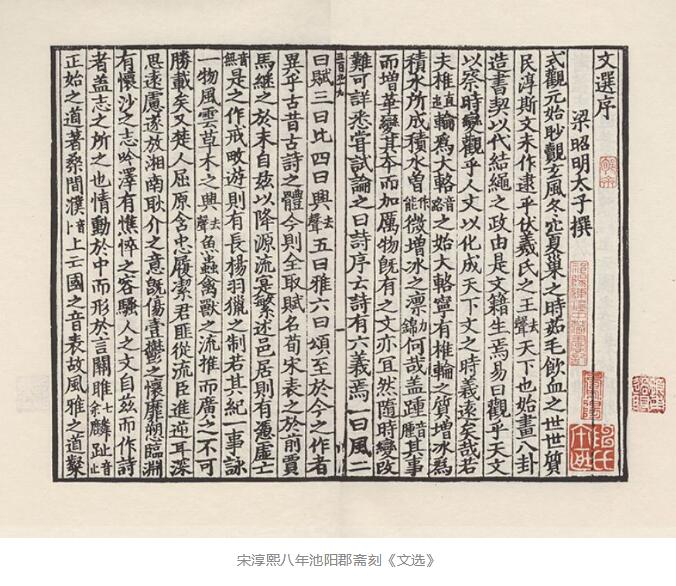 文選序
梁昭明太子撰
式觀元始眇觀玄風冬穴夏巢之時茹毛飲血之世世質
民淳斯文未作逮乎伏羲氏之王去聲天下也始畫八卦
造書契以代結繩之政由是文籍生焉易曰觀乎天文
以察時變觀乎人文以化成天下文之時義遠矣哉若
夫椎直追輪爲大輅音路之始大輅寧有椎輪之質增冰爲
積水所成積水曾作能微增冰之凛力錦何哉蓋踵腫其事
而增華變其本而加厲物既有之文亦宜然隨時變改
難可詳悉嘗試論之曰詩序云詩有六義焉一曰風二
曰賦三曰比四曰興去聲五曰雅六曰頌至於今之作者
異乎古昔古詩之體今則全取賦名荀宋表之於前賈
馬繼之於末自茲以降源流寔繁述邑居則有憑虛亡
音無是之作戒畋遊則有長楊羽獵之制若其紀一事詠
一物風雲草木之興去聲魚蟲禽獸之流推而廣之不可
勝載矣又楚人屈原含忠履潔君匪從流臣進逆耳深
思遠慮遂放湘南耿介之意既傷壹鬱之懷靡愬臨淵
有懷沙之志吟澤有憔悴之容騷人之文自茲而作詩
者蓋志之所之也情動於中而形於言關雎七余麟趾音止
正始之道著桑間濮音卜上亡國之音表故風雅之道粲
宋淳熙八年池阳郡斋刻《文选》